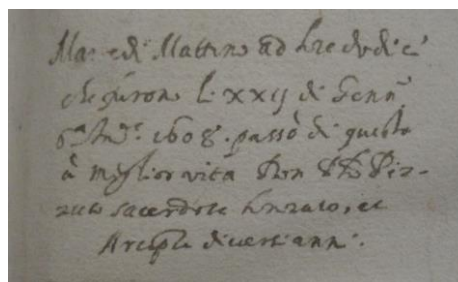 Mar edi Mattino ad hre dodici
che furono li xxij di Genn.
1608. passò di questa
à miglior vita Don Piz-
zuto sacerdote honrato, et
Arcipte diversi anni.